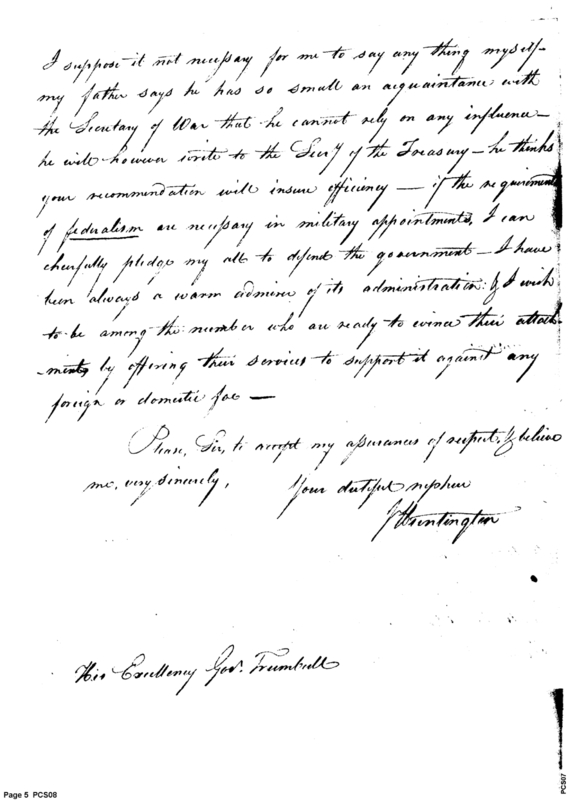 I suppose it not necessary for me to say any thing myself-
my father says he has so small an acquaintance with
the Secretary of War that he cannot rely on any influence-
he will however write to the Secry of the Treasury - he thinks
your recommendation will insure efficiency - if the requirement
of federalism are necessary in military appointments, I can
cheerfully pledge my all to defend the government - I have
been always a warm admirer of its administration; & I wish
to be among the number who are ready to evince their attach-
-ments by offering their services to support it against any
foreign or domestic foe -
Please, Sir, to accept my assurances of respect, & believe
me, very sincerely, Your dutiful nephew
J Huntington
His Excellency Gov. Trumbull
Page 5 PCS08
PCS07